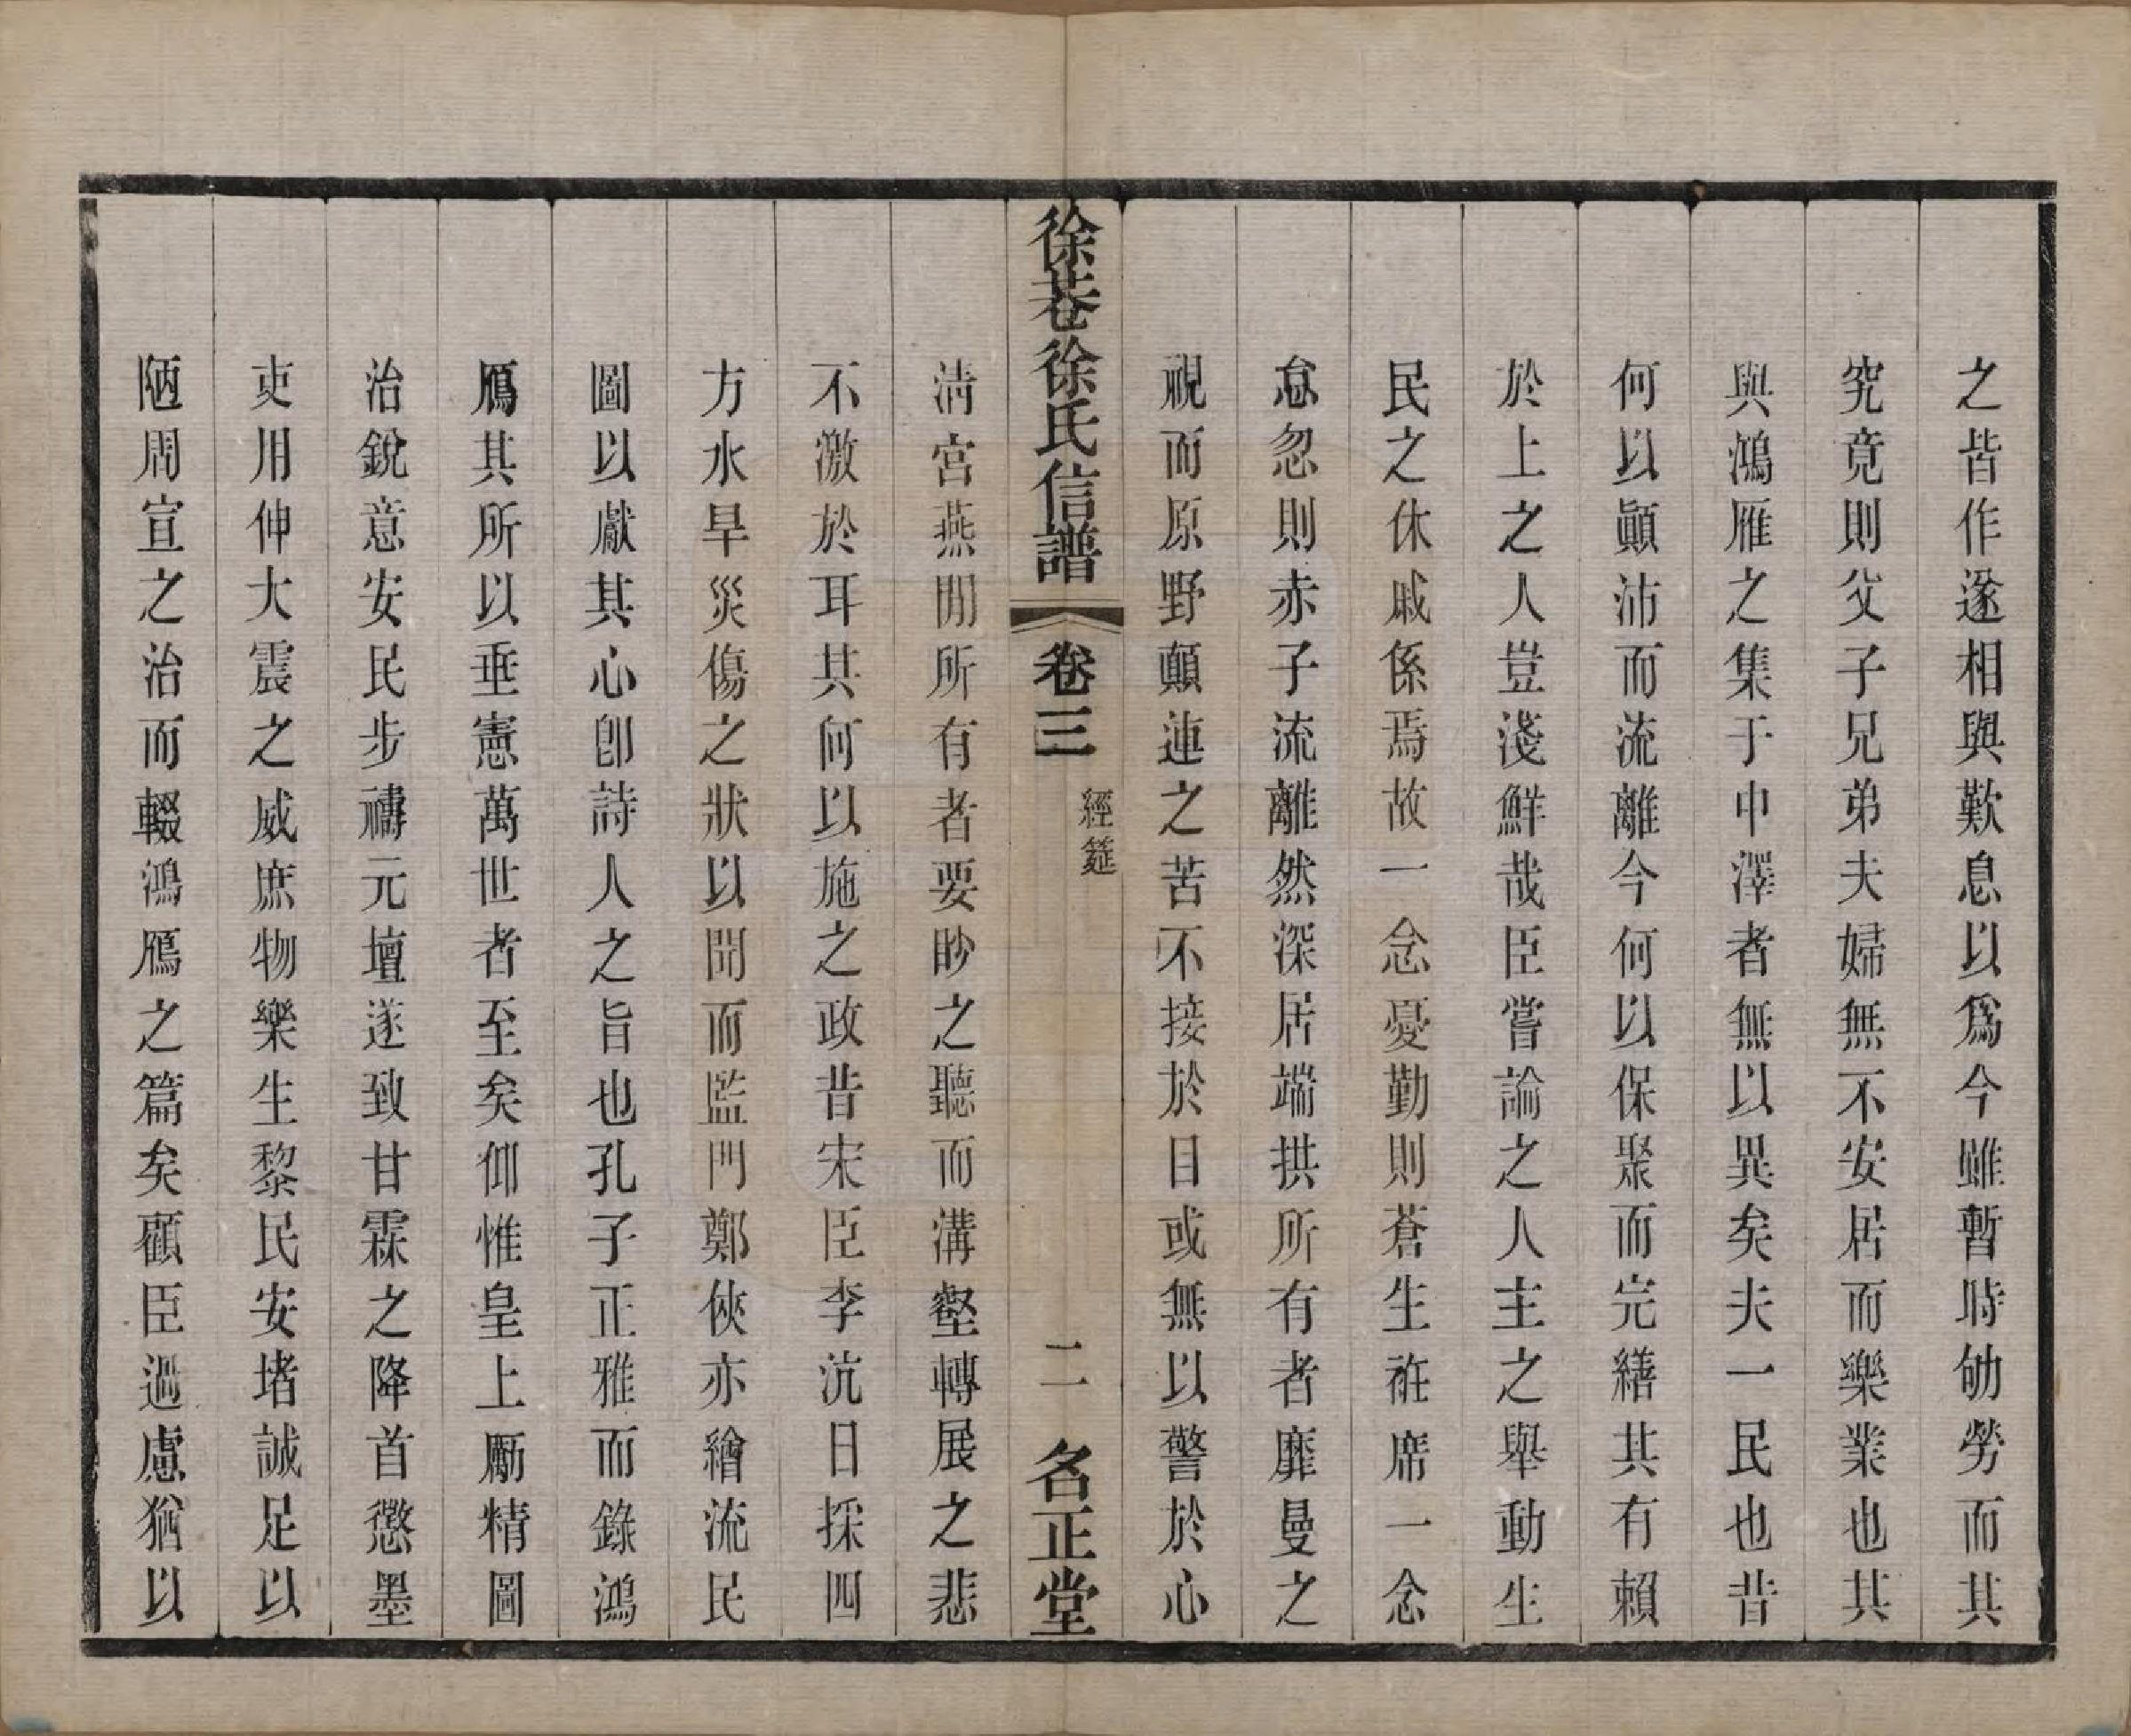 之皆作遂相與歎息以爲今雖暫時劬勞而其
究竟則父子兄弟夫婦無不安居而樂業也其
與鴻雁之集于中澤者無以異矣夫一民也昔
何以顚沛而流離今何以保聚而完繕其有賴
於上之人豈淺鮮哉臣嘗論之人主之舉動生
民之休戚係焉故一念憂勤則蒼生袵席一念
怠忽則赤子流離然深居端拱所有者靡曼之
視而原野顛連之苦不接於目或無以警於心
徐巷徐氏信譜 卷三 經筵 二 名正堂
淸宮燕閒所有者要眇之聽而溝壑轉展之悲
不激於耳其何以施之政昔宋臣李沆日採四
方水旱災傷之狀以聞而監門鄭俠亦繪流民
圖以獻其心卽詩人之旨也孔子正雅而錄鴻
鴈其所以垂憲萬世者至矣仰惟皇上勵精圖
治銳意安民步禱元壇遂致甘霖之降首懲墨
吏用伸大震之威庶物樂生黎民安堵誠足以
陋周宣之治而輟鴻鴈之篇矣顧臣過慮猶以